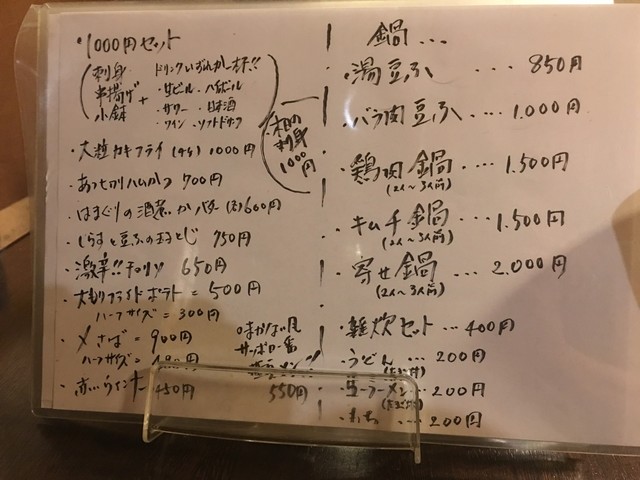 ・1000円セット
刺身
串揚げ
小鉢
+
ドリンクいずれか一杯!!
・生ビール ・八重ビール
・サワー ・日本酒
・ワイン ・ソフトドリンク
・本日の刺身 1000円
・大粒カキフライ 1000円
・あつ切りハムカツ 700円
・はまぐりの酒蒸 か バター 600円
・しらすと豆ふの玉子とじ 750円
・激辛!!チョリソ 650円
・大盛りフライドポテト = 500円
ハーフサイズ = 300円
・〆さば = 900円
ハーフサイズ =
・赤いウインナー 450円
まかない風
サッポロ一番
550円
鍋...
・湯豆ふ ... 850円
・バラ肉豆ふ ... 1.000円
・鶏肉鍋 ... 1.500円
(2人〜3人前)
・キムチ鍋 ... 1.500円
(2人〜3人前)
・寄せ鍋 ... 2.000円
(2人〜3人前)
・雑炊セット ... 400円
・うどん ... 200円
・生ラーメン ... 200円
・もち ... 200円